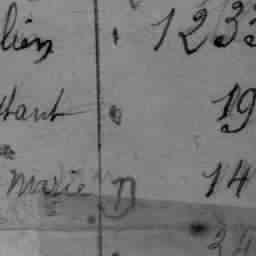 lien 1233
tant 19
Marie D 14
34